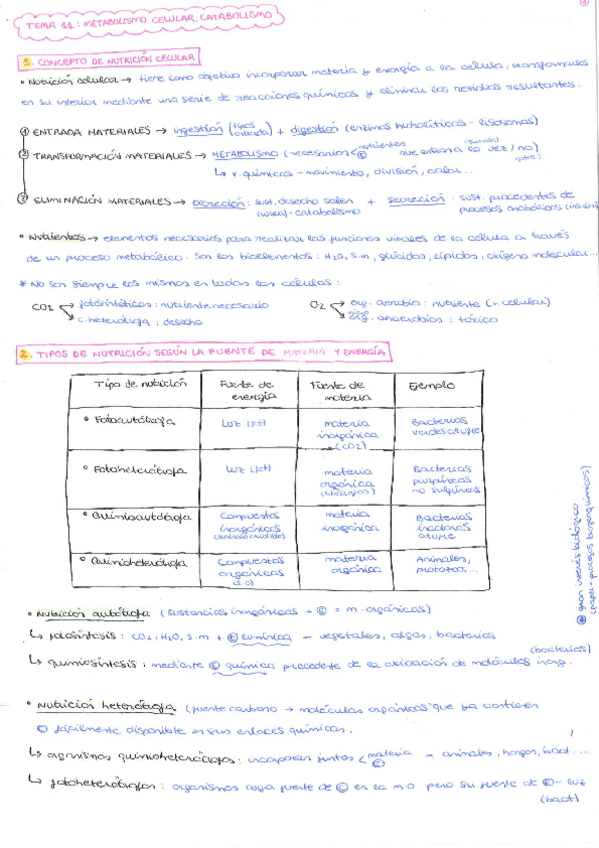 TEMA 11: METABOLISMO CELULAR, CATABOLISMO
1. CONCEPTO DE NUTRICIÓN CELULAR
• Nutrición celular → tiene como objetivo incorporar materia y energía a la célula, transformarlas
en su interior mediante una serie de reacciones químicas y eliminar los residuos resultantes.
① ENTRADA MATERIALES → ingestión + digestión (enzimas hidrolíticas - lisosomas)
② TRANSFORMACIÓN MATERIALES → METABOLISMO (necesarios < nutrientes que entran a la vez / no)
↳ r. químicas - movimiento, división, calor...
③ ELIMINACIÓN MATERIALES → excreción: sust. desecho salen + secreción: sust. procedentes de
(urea) - catabolismo procesos anabólicos
• Nutrientes → elementos necesarios para realizar las funciones vitales de la célula a través
de un proceso metabólico. Son los bioelementos: H2O, s.m, glúcidos, lípidos, oxígeno molecular...
* No son siempre los mismos en todas las células:
CO2 fotosintéticos: nutriente necesario O2 org. aerobio: nutriente (r. celular)
c. heterótrofa: desecho org. anaerobios: tóxico
2. TIPOS DE NUTRICIÓN SEGÚN LA FUENTE DE MATERIA Y ENERGÍA
Tipo de nutrición Fuente de energía Fuente de materia Ejemplo
• Fotoautótrofa Luz materia inorgánica (CO2) Bacterias verdes azufre
• Fotoheterótrofa Luz materia orgánica Bacterias purpúreas no sulfúreas
• Quimioautótrofa Compuestos inorgánicos materia inorgánica Bacterias incoloras azufre
• Quimioheterótrofa Compuestos orgánicos materia orgánica Animales, protozoos...
⊛ gran interés biológico
(papel - procesos biogeoquímicos)
• Nutrición autótrofa (sustancias inorgánicas + Ⓔ = m. orgánicas)
↳ fotosíntesis: CO2, H2O, s.m + Ⓔ lumínica - vegetales, algas, bacterias
(bacterias)
↳ quimiosíntesis: mediante Ⓔ química procedente de la oxidación de moléculas inorg.
• Nutrición heterótrofa (fuente carbono → moléculas orgánicas que ya contienen
Ⓔ fácilmente disponible en sus enlaces químicos.
↳ organismos quimioheterótrofos: incorporan juntos < materia Ⓔ - animales, hongos, bact...
↳ fotoheterótrofos: organismos cuya fuente de Ⓒ es la m.o pero su fuente de Ⓔ - luz
(bact)